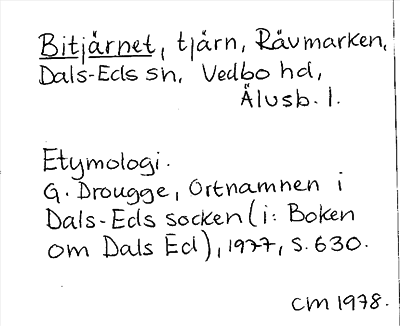 Bitjärnet, tjärn, Rävmarken,
Dals-Eds sn, Vedbo hd,
Älvsb. l.
Etymologi.
G. Drougge, Ortnamnen i
Dals-Eds socken (i: Boken
om Dals Ed), 1977, s. 630.
CM 1978.